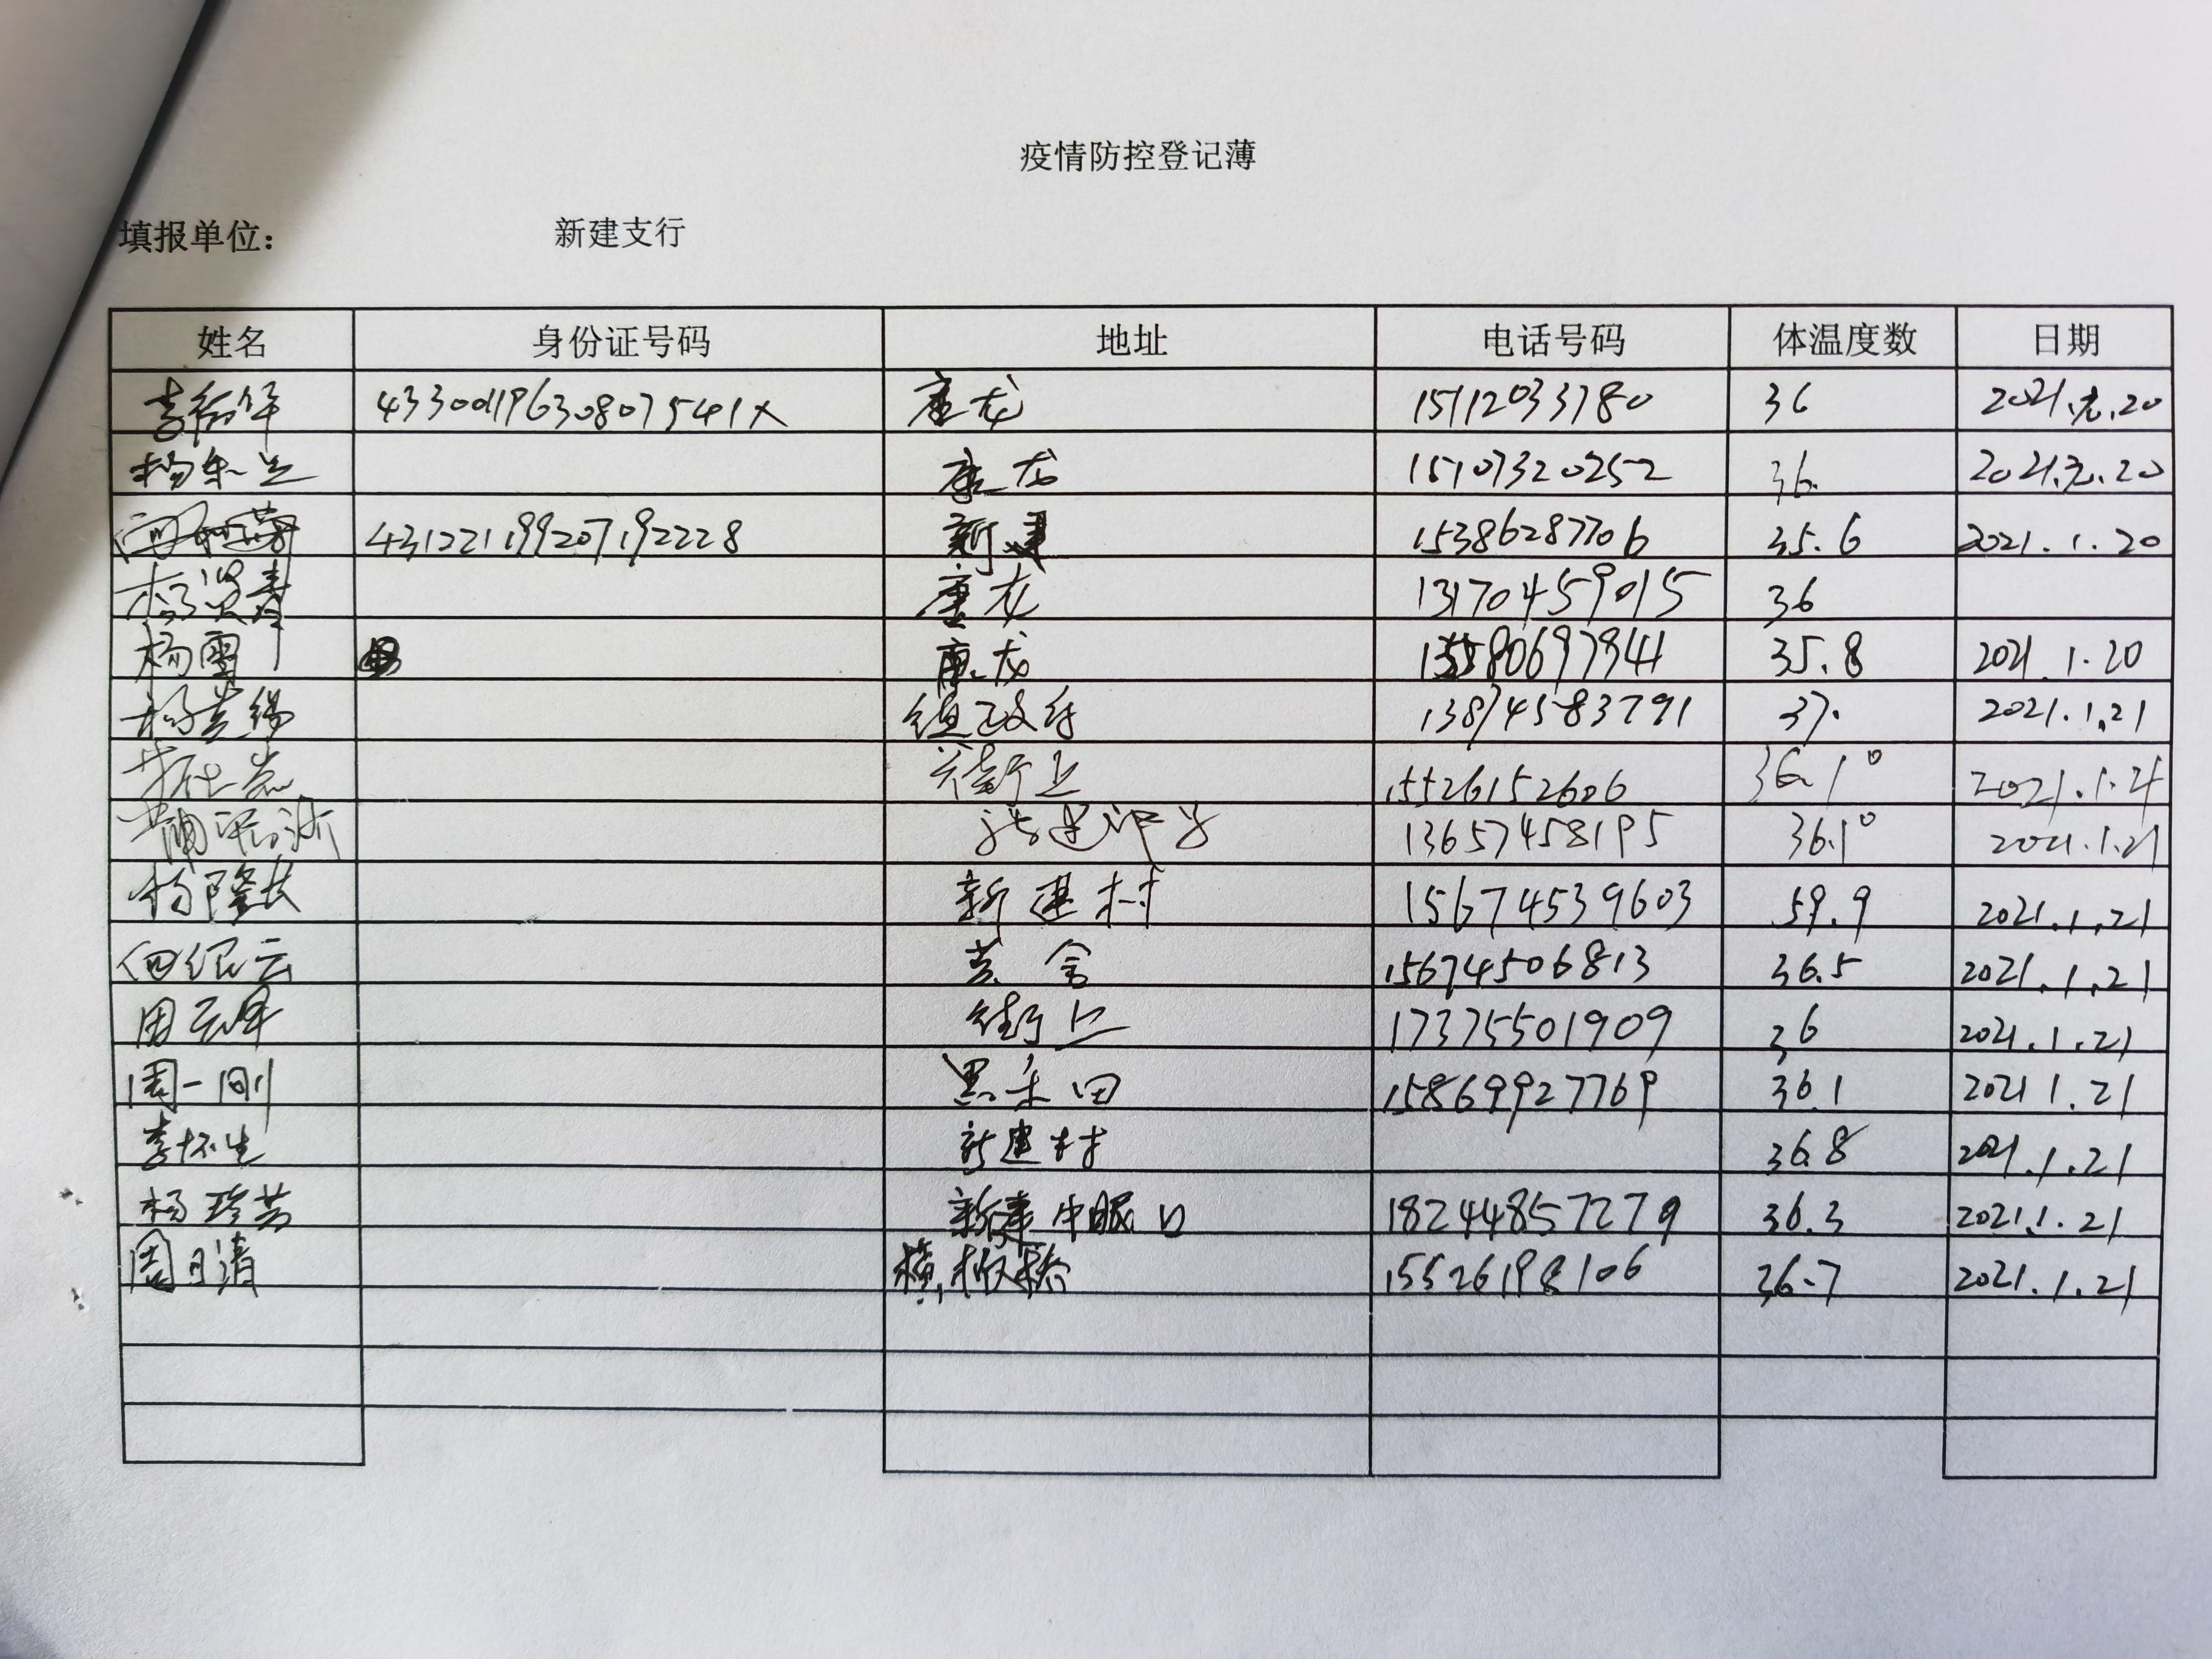 疫情防控登记薄
填报单位： 新建支行
姓名 身份证号码 地址 电话号码 体温度数 日期
李 43300119630807541X 康龙 15112033780 36 2021.元.20
杨 康龙 15107320252 36. 2021.元.20
431221199207192228 新建 15386287706 35.6 2021.1.20
康龙 13170459015 36
杨雪 康龙 15580697941 35.8 2021.1.20
杨 镇政府 13874583791 37. 2021.1.21
街上 15526152606 36.1° 2021.1.21
13657458195 36.1° 2021.1.21
杨隆长 新建村 15674539603 59.9 2021.1.21
15674506813 36.5 2021.1.21
周 街上 17375501909 36 2021.1.21
周一刚 黑禾田 15869927769 36.1 2021 1.21
李怀生 新建村 36.8 2021.1.21
杨珍 新建中眼口 18244857279 36.3 2021.1.21
周日清 横板桥 15526198106 36.7 2021.1.21